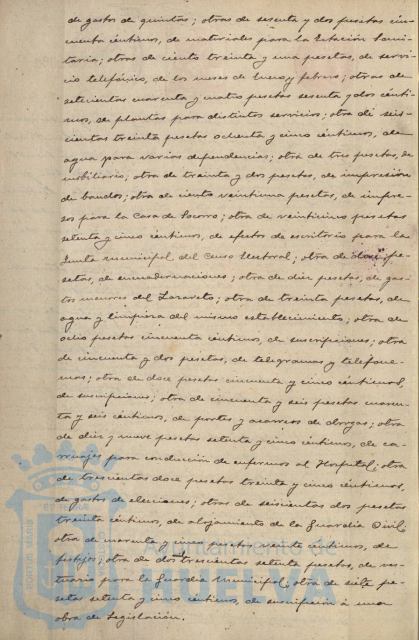 de gastos de quintas; otras de sesenta y dos pesetas cin-
cuenta céntimos, de materiales para la Estación Sani-
taria; otras de ciento treinta y una pesetas, de servi-
cio telefónico, de los meses de Enero y febrero; otras de
setecientas cuarenta y cuatro pesetas sesenta y dos cénti-
mos, de plantas para distintos servicios; otra de seis-
cientas treinta pesetas ochenta y cinco céntimos, de
agua para varias dependencias; otra de tres pesetas, de
mobiliario; otra de treinta y dos pesetas, de impresión
de bandos; otra de ciento veintiuna pesetas, de impre-
sos para la Casa de Socorro; otra de veinticinco pesetas
setenta y cinco céntimos, de efectos de escritorio para la
Junta municipal del Censo Electoral; otra de doce pe-
setas, de encuadernaciones; otra de diez pesetas, de gas-
tos menores del Lazareto; otra de treinta pesetas, de
agua y limpieza del mismo establecimiento; otra de
ocho pesetas cincuenta céntimos, de suscripciones; otra
de cincuenta y dos pesetas, de telegramas y telefone-
mas; otra de doce pesetas cincuenta y cinco céntimos,
de suscripciones; otra de cincuenta y seis pesetas cuaren-
ta y seis céntimos, de portes y acarreos de drogas; otra
de diez y nueve pesetas setenta y cinco céntimos, de ca-
rruajes para conducción de enfermos al Hospital; otra
de trescientas doce pesetas treinta y cinco céntimos,
de gastos de elecciones; otras de seiscientas dos pesetas
treinta céntimos, de alojamiento de la Guardia Civil;
otra de cuarenta y cinco pesetas veinte céntimos, de
festejos; otra de dos trescientas setenta pesetas, de ves-
tuario para la Guardia Municipal; otra de siete pe-
setas setenta y cinco céntimos, de suscripción á una
obra de Legislación.
Ayuntamiento de
HUELVA